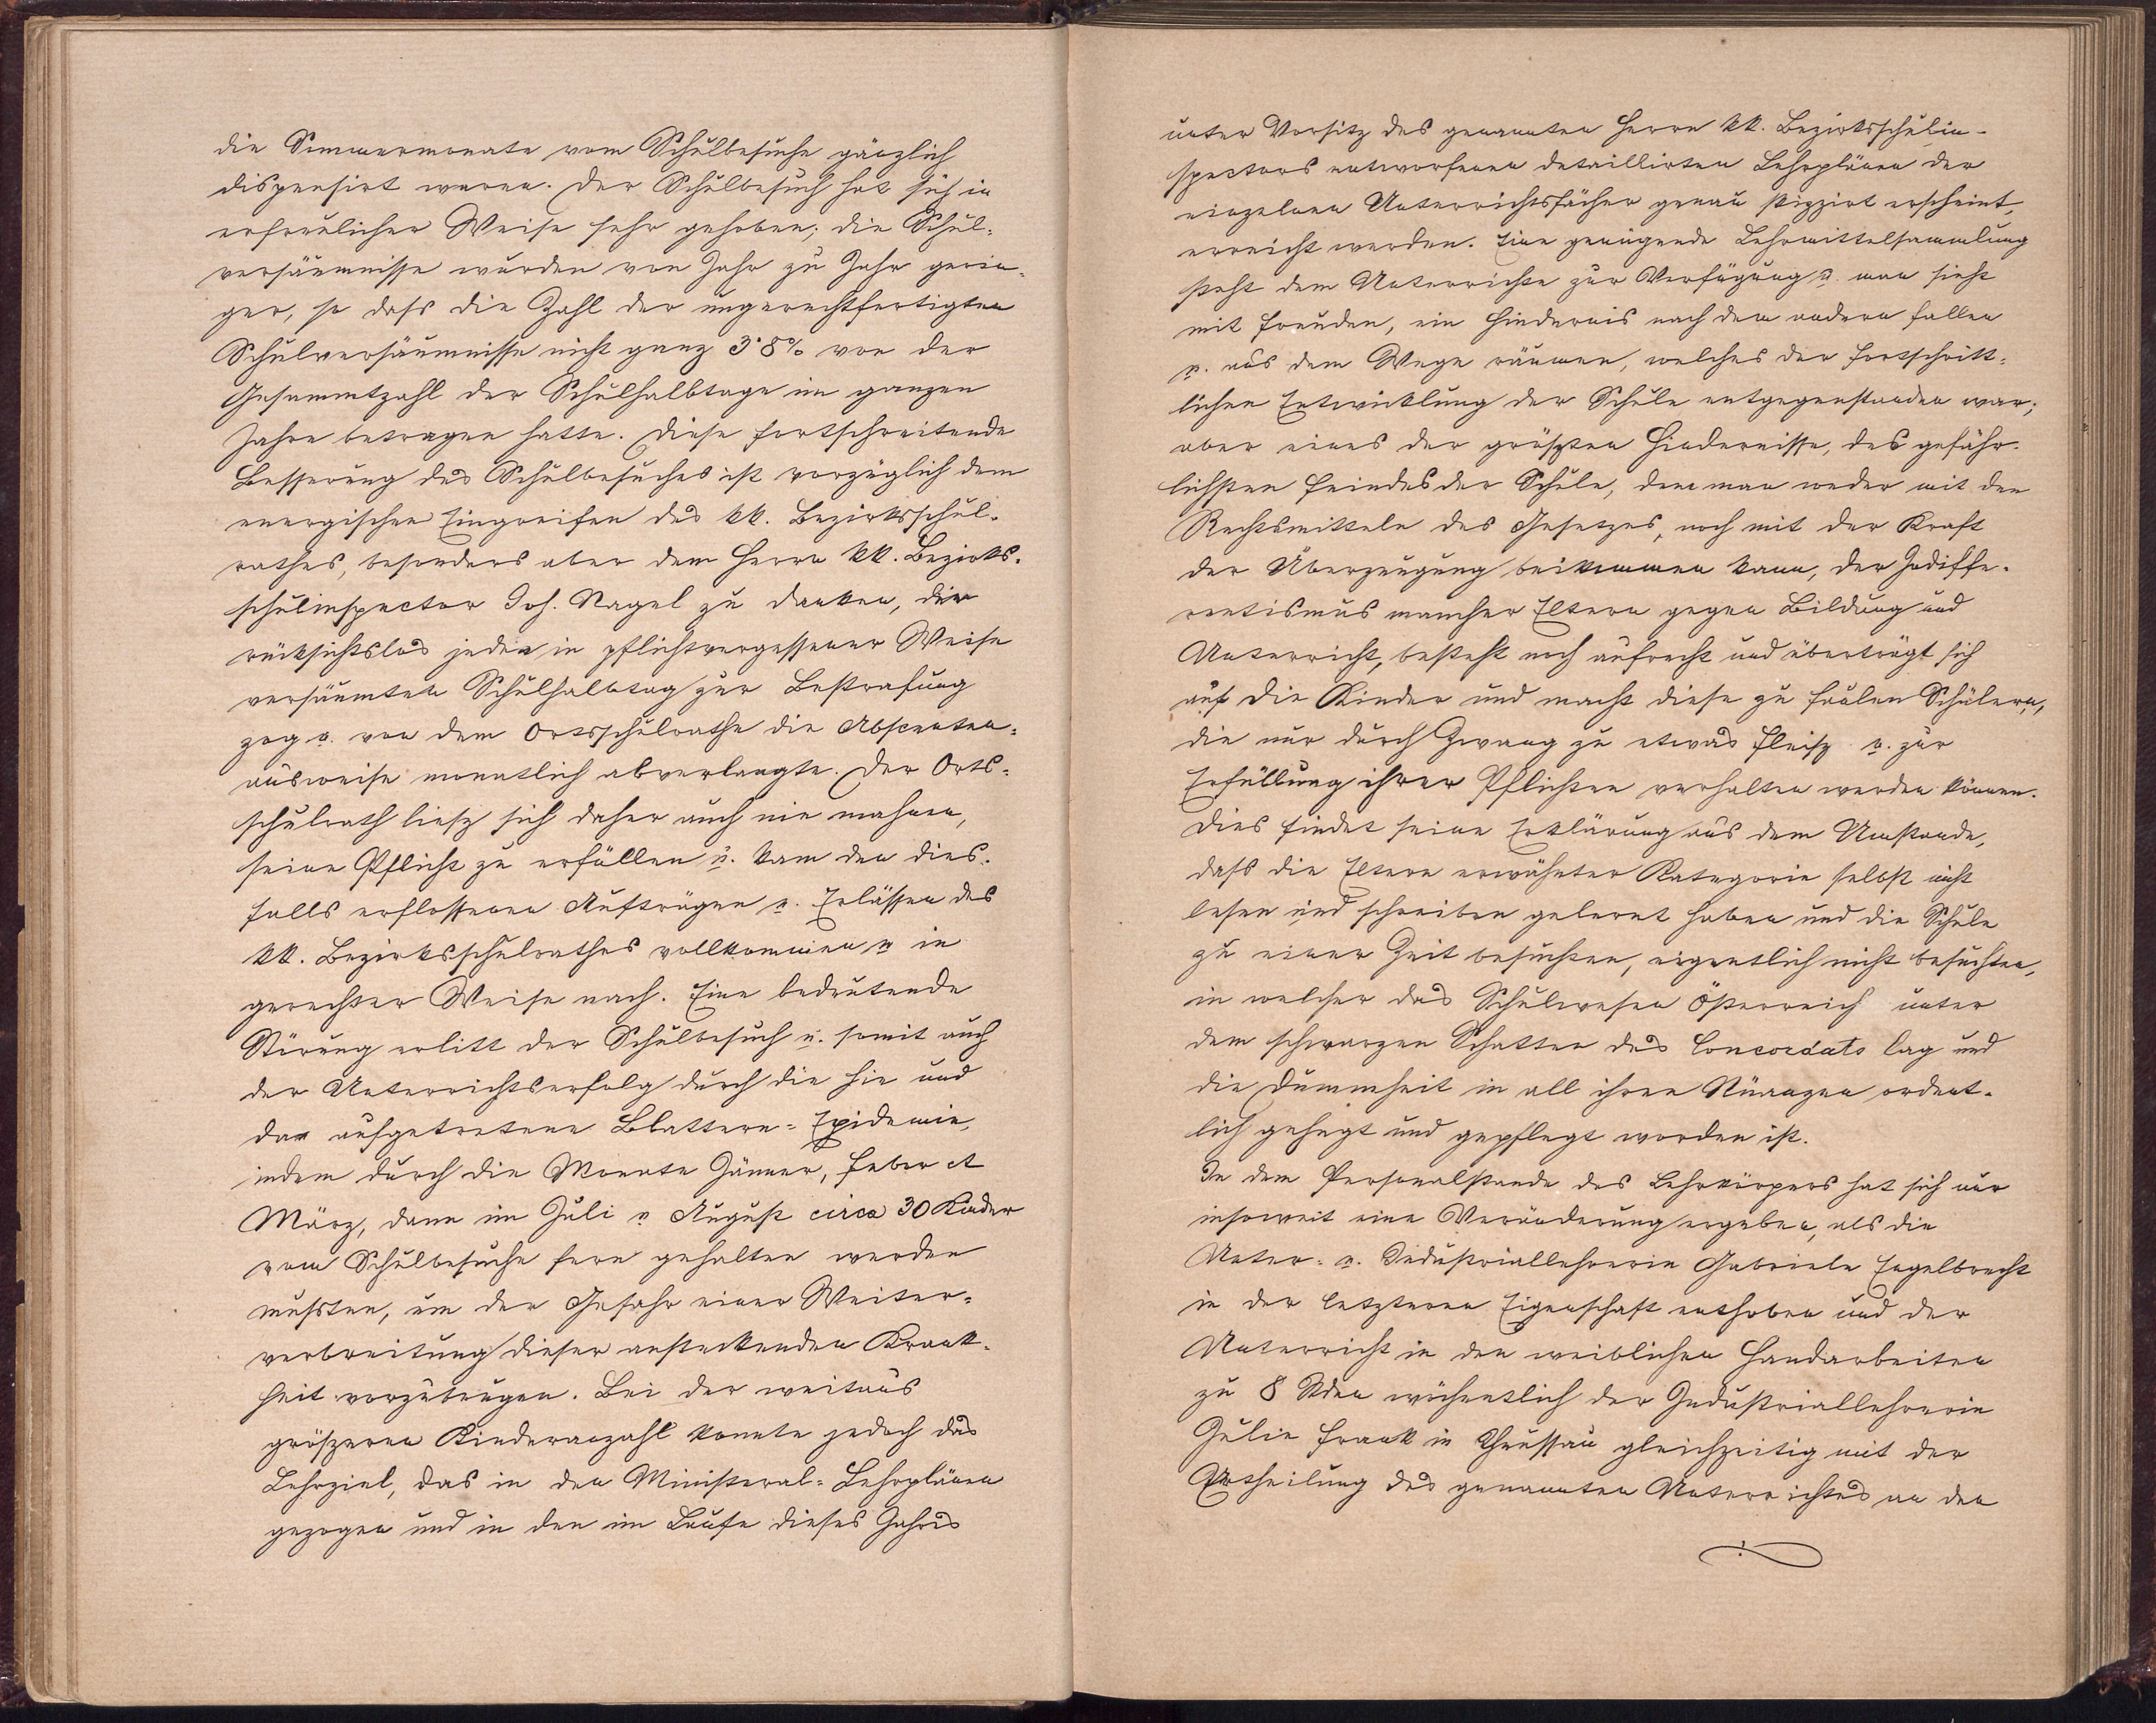 die Sommermonate vom Schulbesuche gänzlich
dispensirt waren. Der Schulbesuch hat sich in
erfreulicher Weise sehr gehoben; die Schul-
versäumnisse wurden von Jahr zu Jahr gerin-
ger, so dass die Zahl der ungerechtfertigten
Schulversäumnisse nicht ganz 3·8% von der
Gesammtzahl der Schulhalbtage im ganzen
Jahre betragen hatte. Diese fortschreitende
Besserung des Schulbesuches ist vorzüglich dem
energischen Eingreifen des kk. Bezirksschul-
rathes, besonders aber dem Herrn kk. Bezirks-
schulinspector Joh. Nagel zu danken, der
rücksichtslos jeden in pflichtvergessener Weise
versäumten Schulhalbtag zur Bestrafung
zog u. von dem Ortsschulrathe die Absenten-
ausweise monatlich abverlangte. Der Orts-
schulrath liesz sich daher auch nie mahnen,
seine Pflicht zu erfüllen u. kam den dies-
falls erflossenen Aufträgen u. Erlässen des
kk. Bezirksschulrathes vollkommen u in
gerechter Weise nach. Eine bedeutende
Störung erlitt der Schulbesuch u. somit auch
der Unterrichtserfolg durch die hie und
da aufgetretene Blattern-Epidemie,
indem durch die Monate Jänner, Feber et
März, dann im Juli u August circa 30 Kinder
vom Schulbesuche fern gehalten werden
mussten, um der Gefahr einer Weiter-
verbreitung dieser ansteckenden Krank-
heit vorzubeugen. Bei der weitaus
gröszeren Kinderanzahl konnte jedoch das
Lehrziel, das in den Ministeral-Lehrplänen
gezogen und in den im Laufe dieses Jahres
unter Vorsitz des genannten Herrn kk. Bezirksschulin-
spectors entworfenen detaillirten Lehrplänen der
einzelnen Unterrichtsfächer genau skizzirt erscheint,
erreicht werden. Eine genügende Lehrmittelsammlung
steht dem Unterrichte zur Verfügung u. man sieht
mit Freuden, ein Hindernis nach dem andern fallen
u. aus dem Wege räumen, welches der fortschritt-
lichen Entwicklung der Schule entgegenstanden war;
aber eines der gröszten Hindernisse, des gefähr-
lichsten Feindes der Schule, dem man weder mit den
Rechtsmitteln des Gesetzes, noch mit der Kraft
der Überzeugung beikommen kann, der Indiffe-
rentismus mancher Eltern gegen Bildung und
Unterricht, besteht noch aufrecht und überträgt sich
auf die Kinder und macht diese zu faulen Schülern,
die nur durch Zwang zu etwas Fleisz u. zur
Erfüllung ihrer Pflichten verhalten werden können.
Dies findet seine Erklärung aus dem Umstande,
dass die Eltern erwähnter Kategorie selbst nicht
lesen und schreiben gelernt haben und die Schule
zu einer Zeit besuchten, eigentlich nicht besuchten,
in welcher das Schulwesen Österreich unter
dem schwarzen Schatten des Concordats lag und
die Dummheit in all ihren Nüanzen ordent-
lich gehegt und gepflegt worden ist.
In dem Personalstande des Lehrkörpers hat sich nur
insoweit eine Veränderung ergeben, als die
Unter- u. Industriallehrerin Gabriele Engelbrecht
in der letzteren Eigenschaft enthoben und der
Unterricht in den weiblichen Handarbeiten
zu 8 Stden wöchentlich der Industriallehrerin
Julie Frank in Theussau gleichzeitig mit der
Ertheilung des genannten Unterrichtes an den